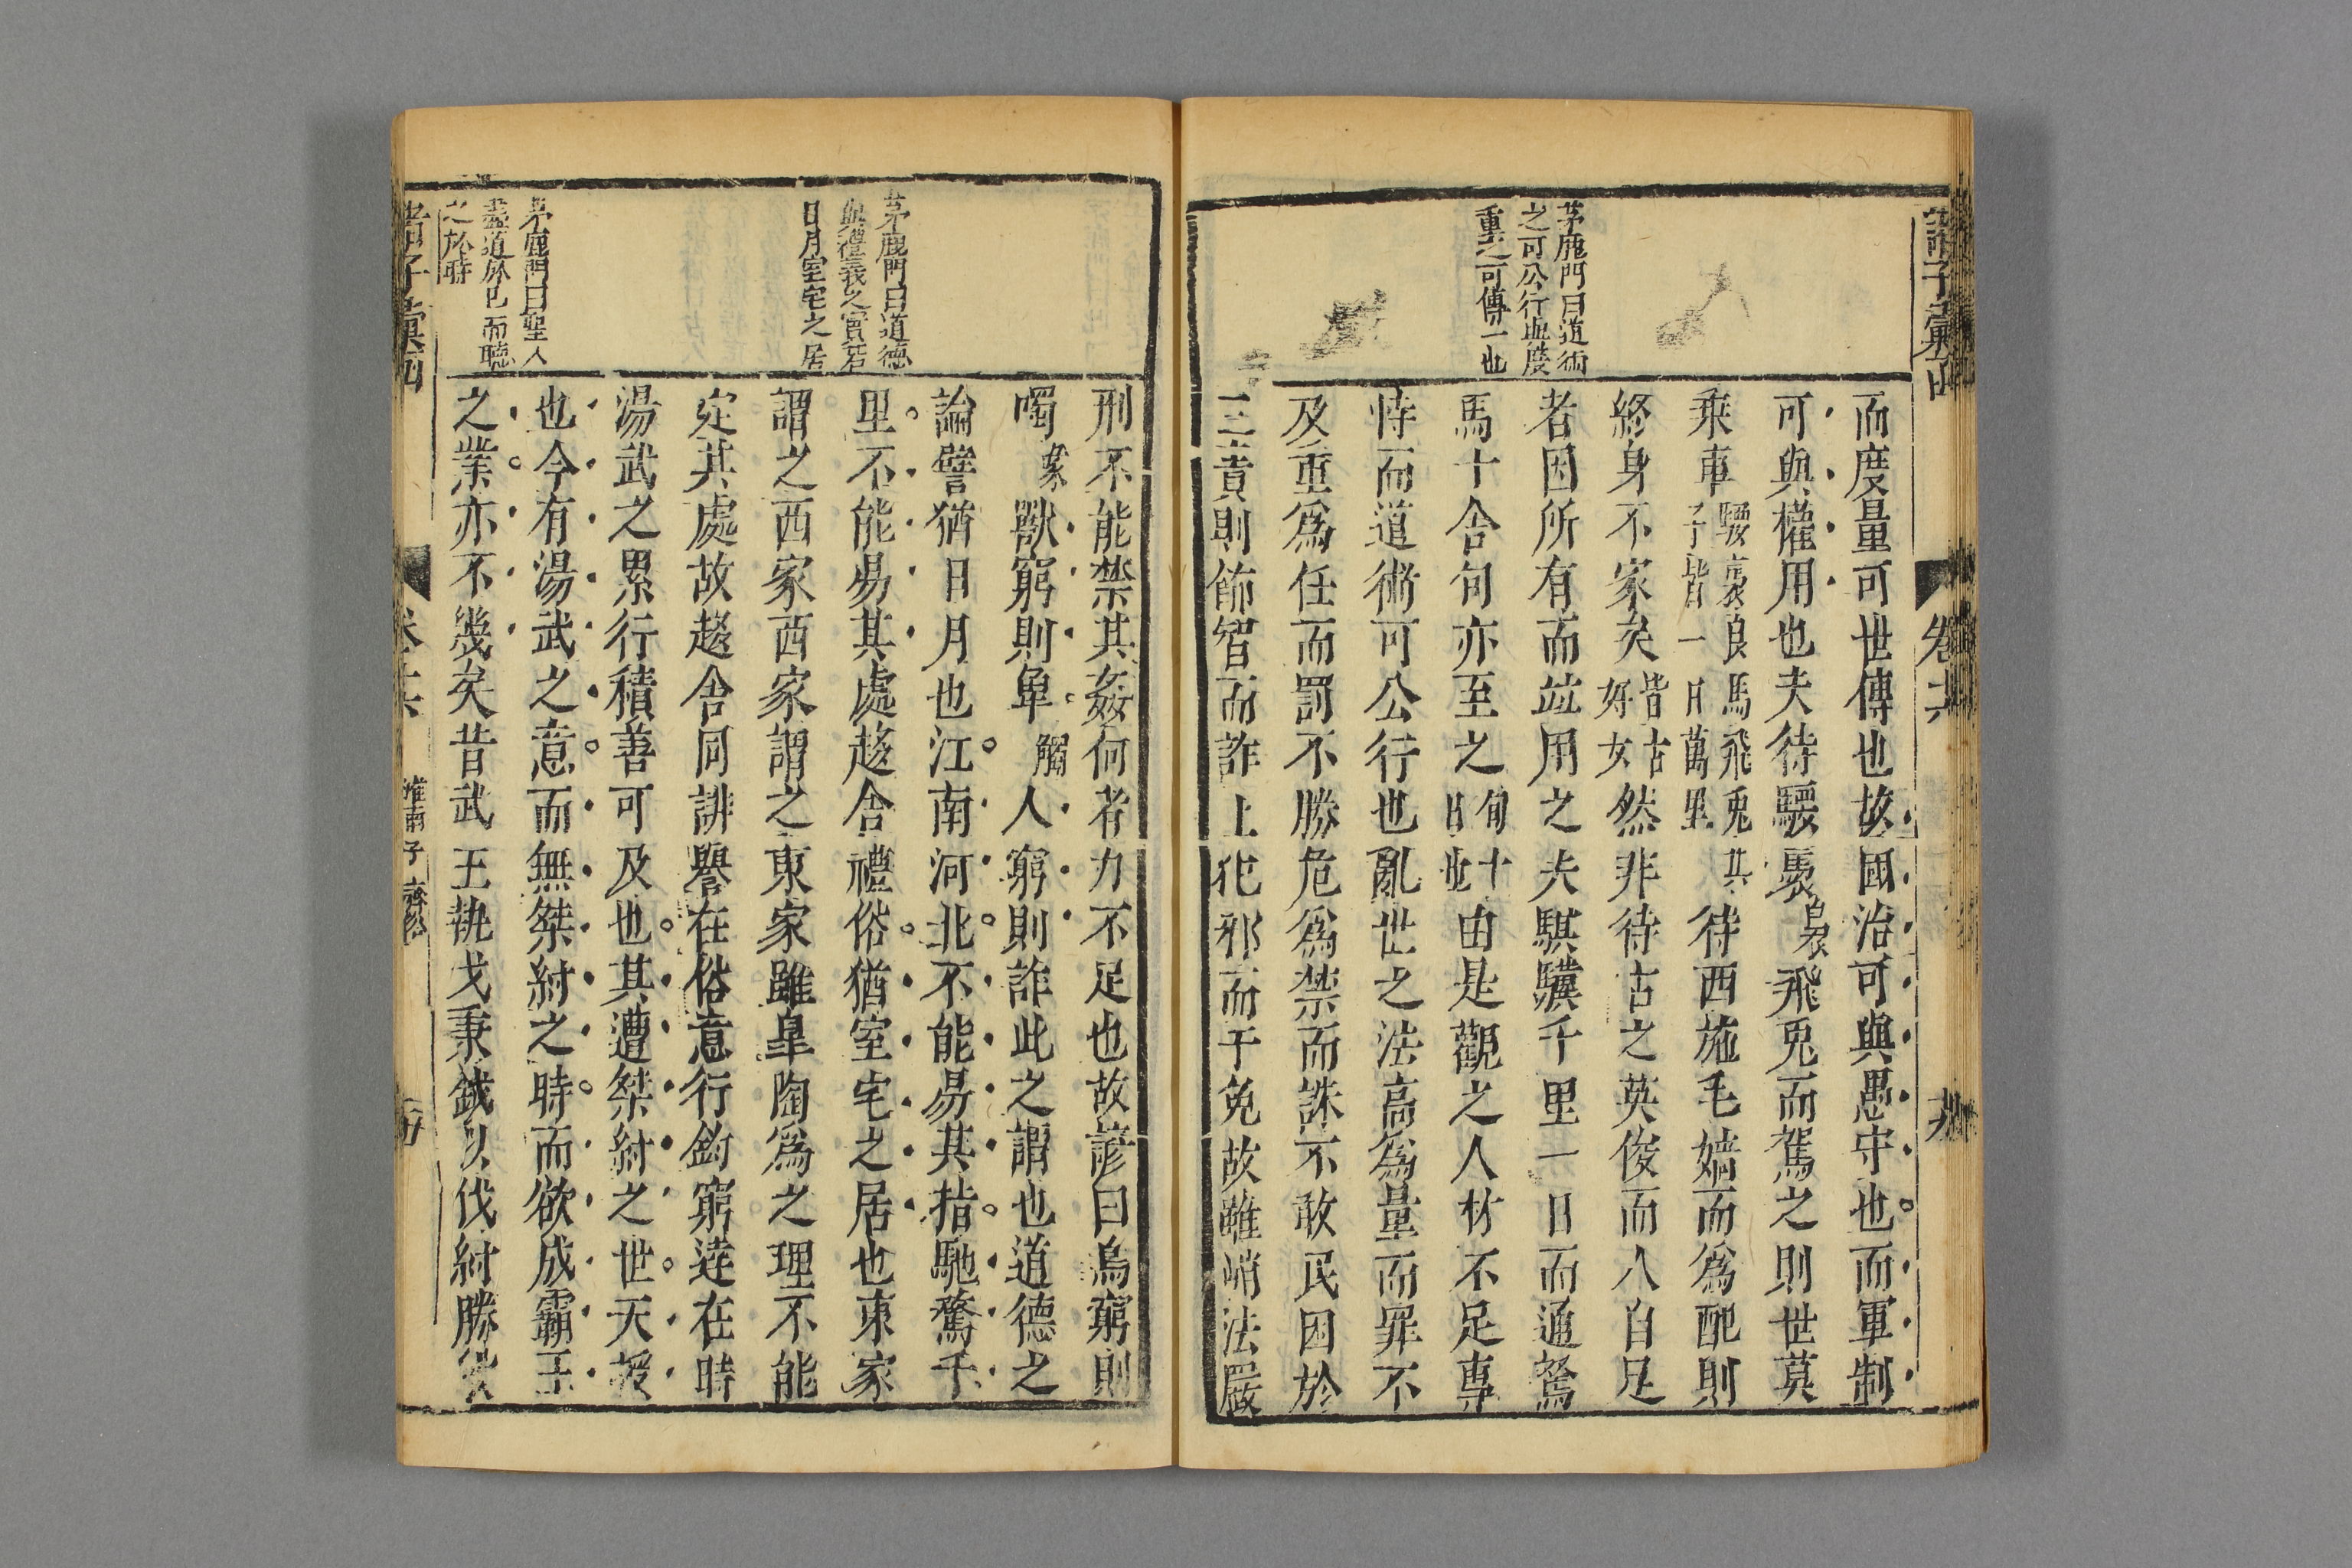 茅鹿門曰道術
之可公行與度
量之可傳一也
而度量可世傳也故國治可與愚守也而軍制
可與權用也夫待騕褭裊飛兎而駕之則世莫
乘車騕褭良馬飛兎其子皆一日萬里待西施毛嬙而為配則
終身不家矣皆古好女然非待古之英俊而人自足
者因所有而竝用之夫騏驥千里一日而通駑
馬十舍旬亦至之旬十日也由是觀之人材不足專
恃而道術可公行也亂世之法高為量而罪不
及重為任而罰不勝危為禁而誅不敢民困於
三責則飾智而詐上犯邪而干免故雖峭法嚴
茅鹿門曰道德
與禮義之實若
日月室宅之居
茅鹿門曰聖人
盡道於已而聽
之於時
刑不能禁其姦何者力不足也故諺曰鳥窮則
噣獸窮則𢍉觸人窮則詐此之謂也道德之
論譬猶日月也江南河北不能易其指馳騖千
里不能易其處趍舍禮俗猶室宅之居也東家
謂之西家西家謂之東家雖皐陶為之理不能
定其處故趍舍同誹譽在俗意行鈞窮逹在時
湯武之累行積善可及也其遭桀紂之世天授
也今有湯武之意而無桀紂之時而欲成霸王
之業亦不幾矣昔武王執戈秉鉞以伐紂勝
淮南子 齊俗